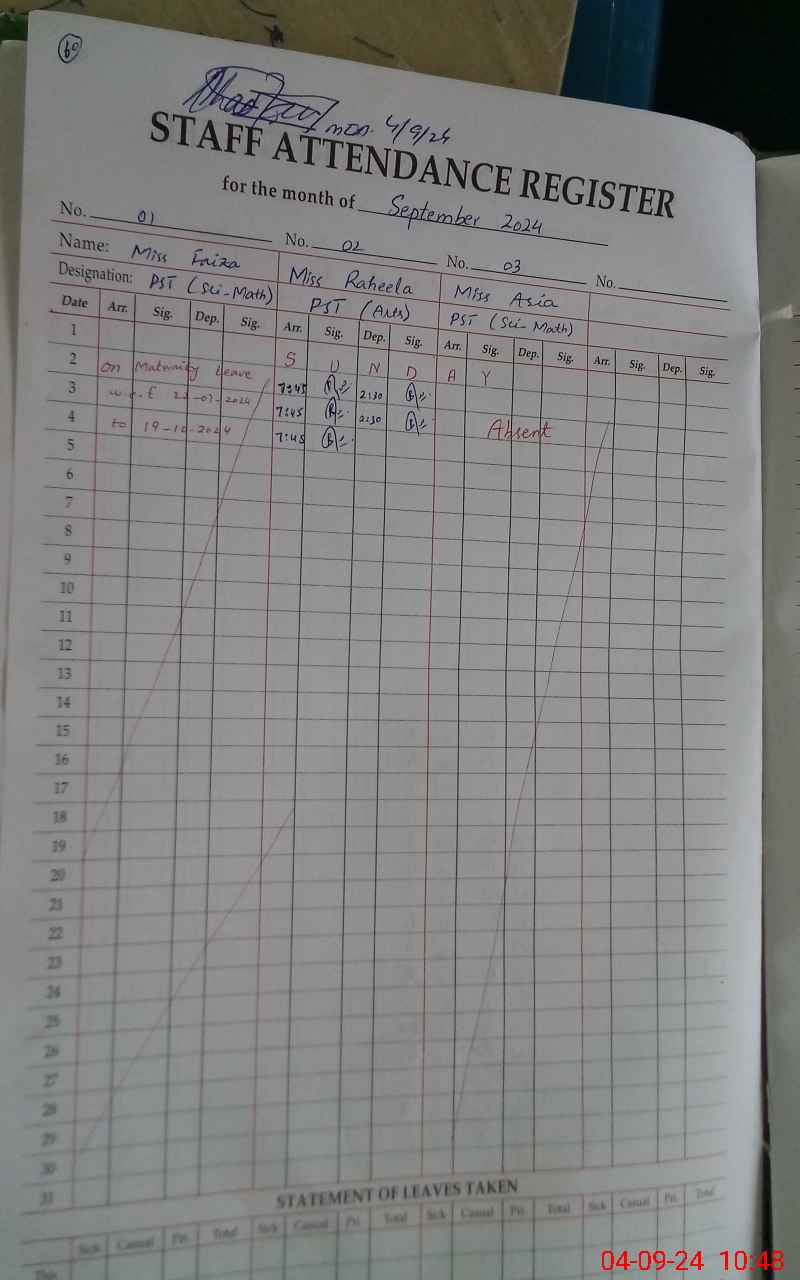 60
mon. 4/9/24
STAFF ATTENDANCE REGISTER
for the month of September 2024
No. 01 No. 02 No. 03 No.
Name: Miss Faiza Miss Raheela Miss Asia
Designation: PST (Sci-Math) PST (Arts) PST (Sci-Math)
Date Arr. Sig. Dep. Sig. Arr. Sig. Dep. Sig. Arr. Sig. Dep. Sig. Arr. Sig. Dep. Sig.
1 S U N D A Y
2 on Maturnity Leave 7:45 2:30
3 w.e.f 22-07-2024 7:45 2:30
4 to 19-10-2024 7:45 Absent
5
6
7
8
9
10
11
12
13
14
15
16
17
18
19
20
21
22
23
24
25
26
27
28
29
30
31
STATEMENT OF LEAVES TAKEN
Sick Casual Pri. Total Sick Casual Pri. Total Sick Casual Pri. Total Sick Casual Pri. Total
This
04-09-24 10:48